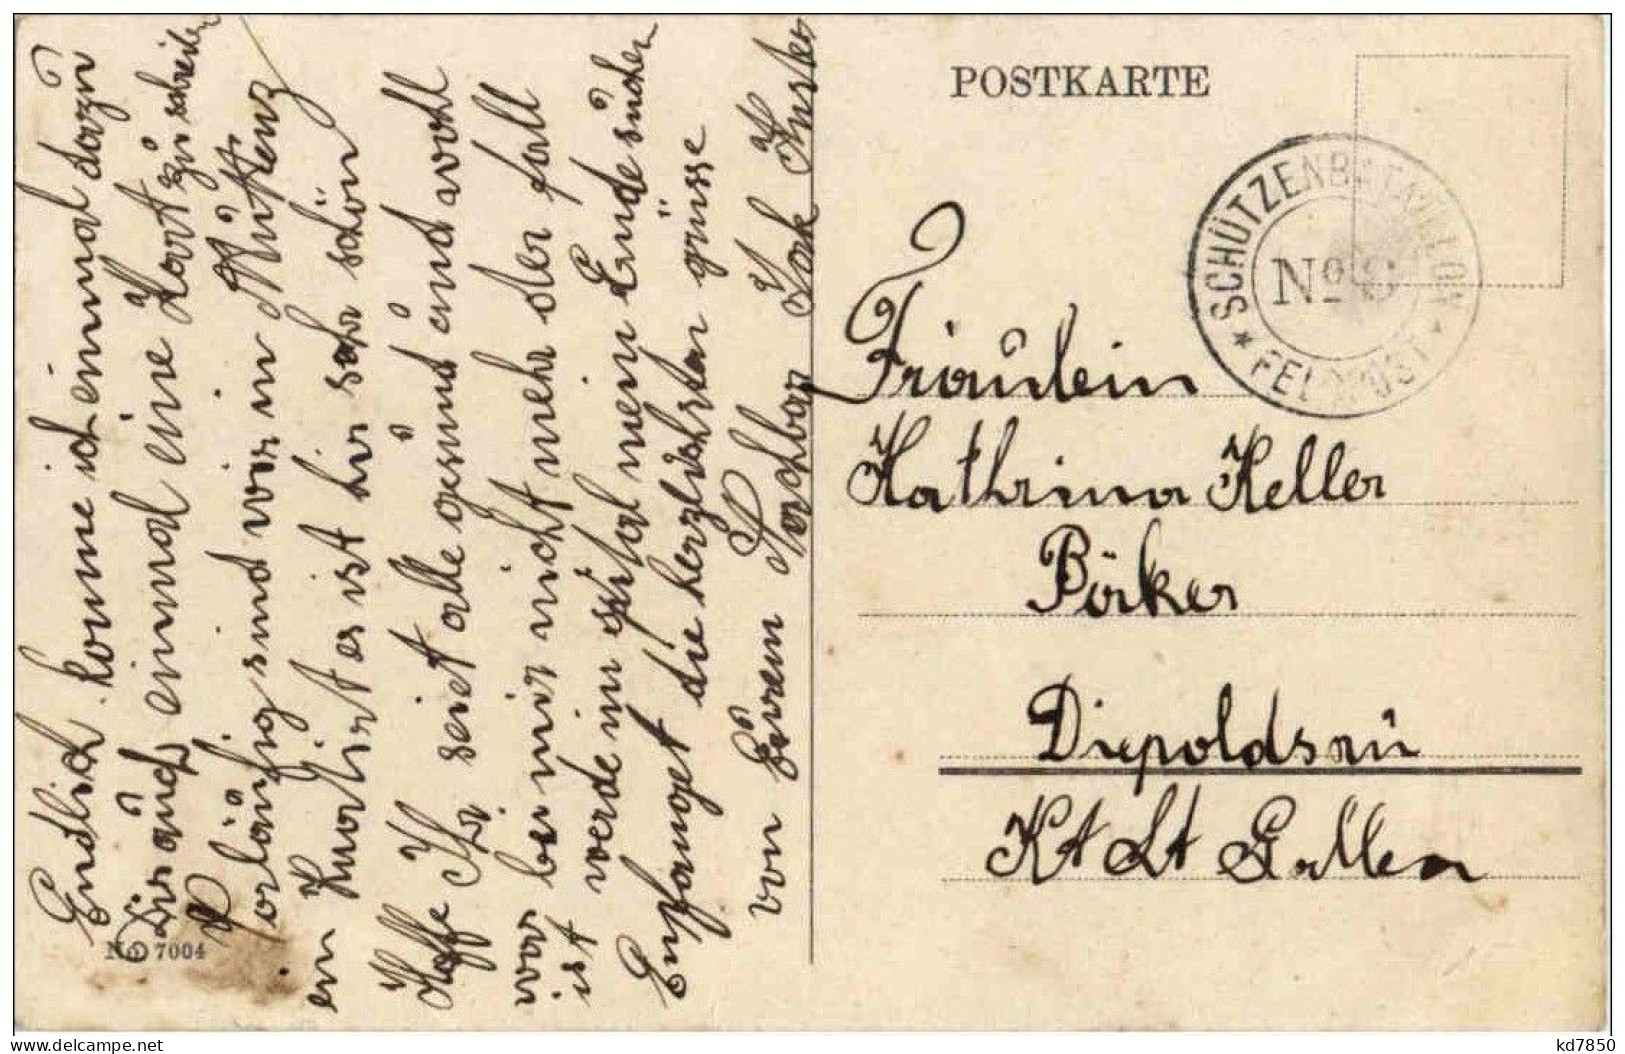 Endlich kome ich einmal dazu
Dir auch einmal eine Kart zu schreiben
Vorläufig sind wir in Mutenz
ein Kuartirt es ist hir sehr schön
Hoffe Ihr seit alle gesund und wohl
was bei mir nicht mehr der fall
ist werde im spital mein Ende suchen
Enfanget die herzlichsten grüsse
von Eurem Nachbar Jak Kuster
No. 7004
POSTKARTE
SCHÜTZENBATAILLON
No 8
* FELDPOST *
Fräulein
Kathrina Keller
Diepoldsau
Kt St Gallen
kd7850